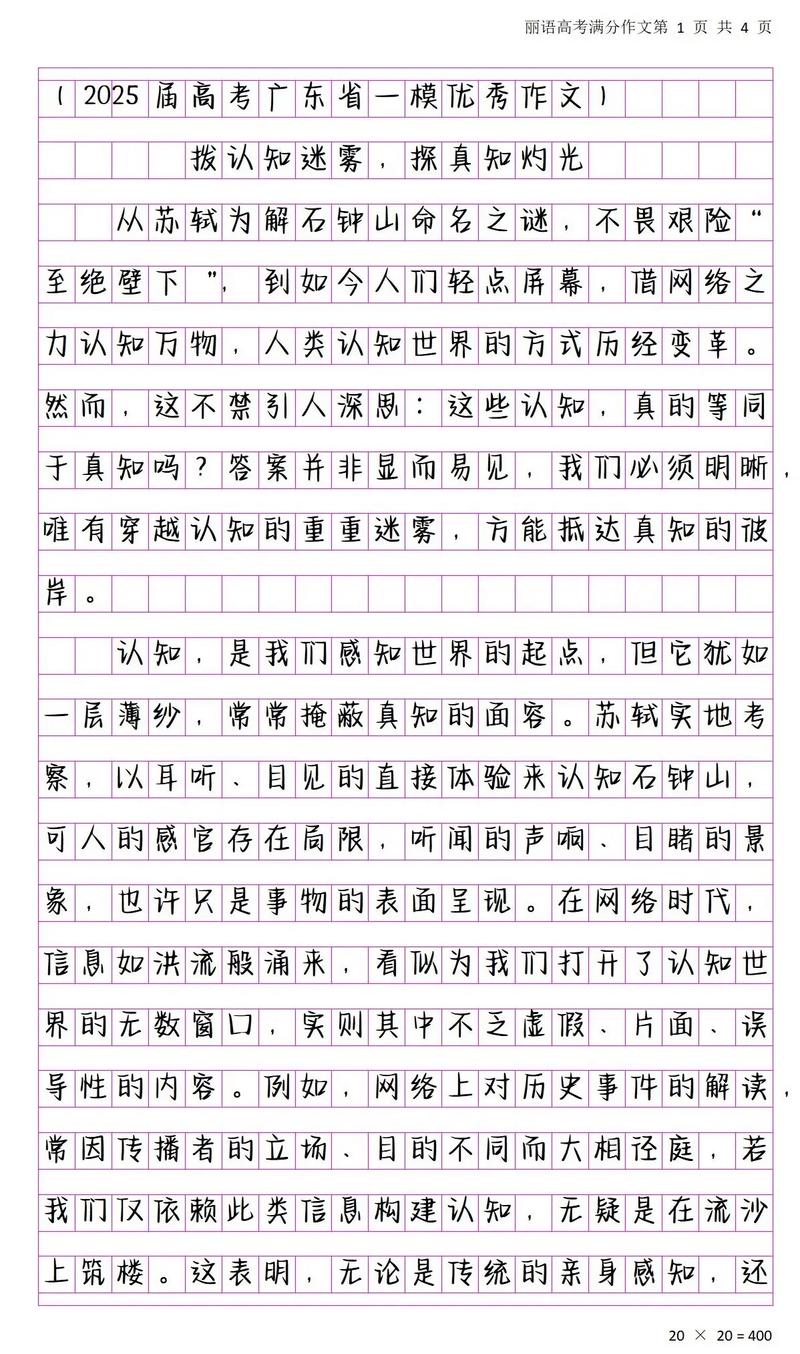 丽语高考满分作文第 1 页 共 4 页
(2025届高考广东省一模优秀作文)
拨认知迷雾,探真知灼光
从苏轼为解石钟山命名之谜,不畏艰险“
至绝壁下”,到如今人们轻点屏幕,借网络之
力认知万物,人类认知世界的方式历经变革。
然而,这不禁引人深思:这些认知,真的等同
于真知吗?答案并非显而易见,我们必须明晰,
唯有穿越认知的重重迷雾,方能抵达真知的彼
岸。
认知,是我们感知世界的起点,但它犹如
一层薄纱,常常掩蔽真知的面容。苏轼实地考
察,以耳听、目见的直接体验来认知石钟山,
可人的感官存在局限,听闻的声响、目睹的景
象,也许只是事物的表面呈现。在网络时代,
信息如洪流般涌来,看似为我们打开了认知世
界的无数窗口,实则其中不乏虚假、片面、误
导性的内容。例如,网络上对历史事件的解读,
常因传播者的立场、目的不同而大相径庭,若
我们仅依赖此类信息构建认知,无疑是在流沙
上筑楼。这表明,无论是传统的亲身感知,还
20 × 20 = 400